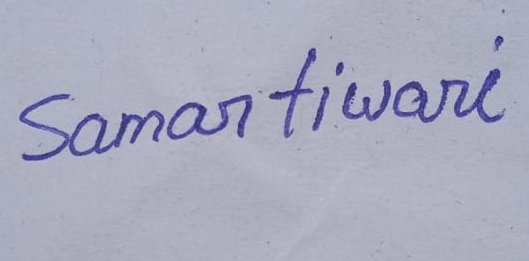 Samar tiwari